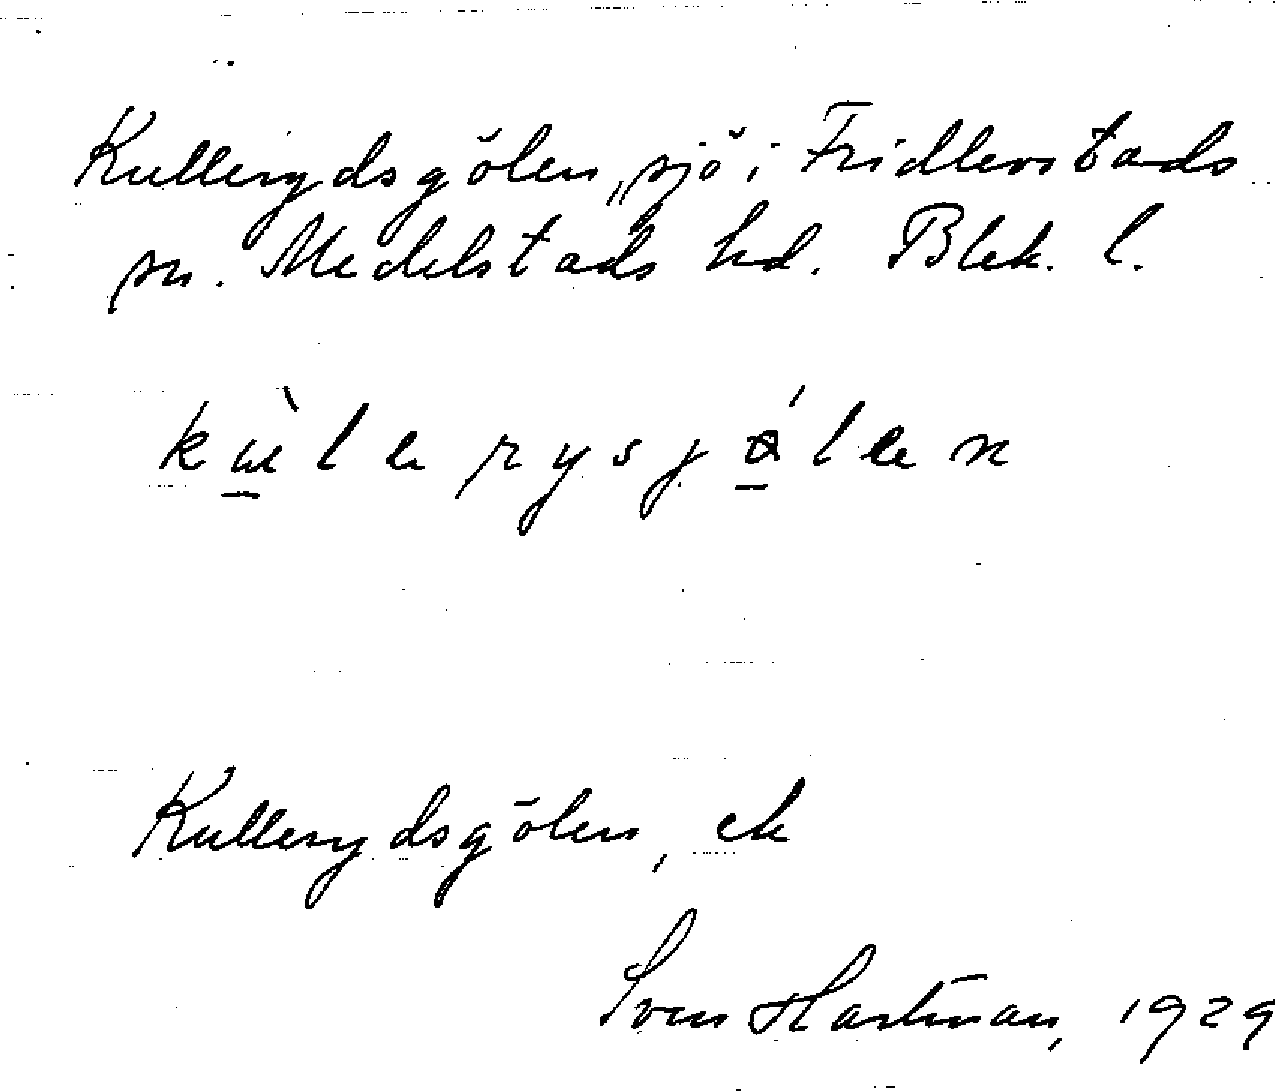 Kullerydsgölen, sjö i Fridlevstads
sn. Medelstads hd. Blek. l.
Kullerydsgölen, ek
Sven Hartman, 1929